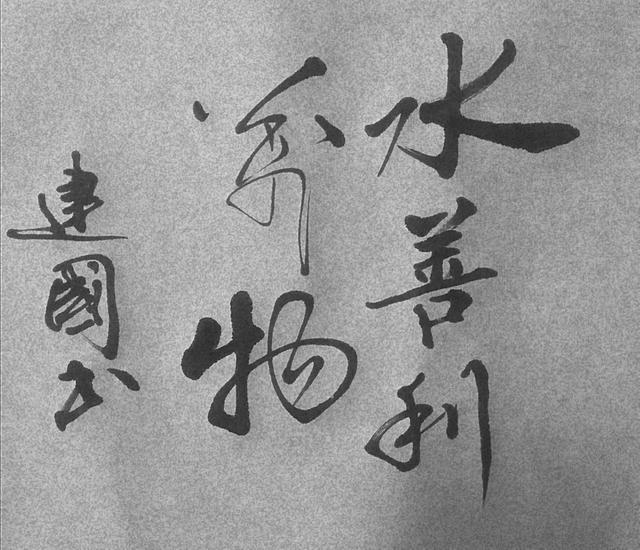 水善利
萬物
建國书